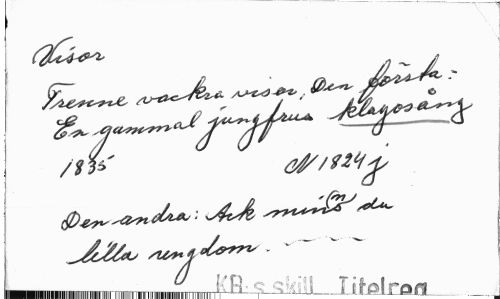 Visor
Trenne vackra visor, Den första:
En gammal jungfrus klagosång
1835 N 1824 j
Den andra: Ack minns du
lilla ungdom.
KB:s skill. Titelreg